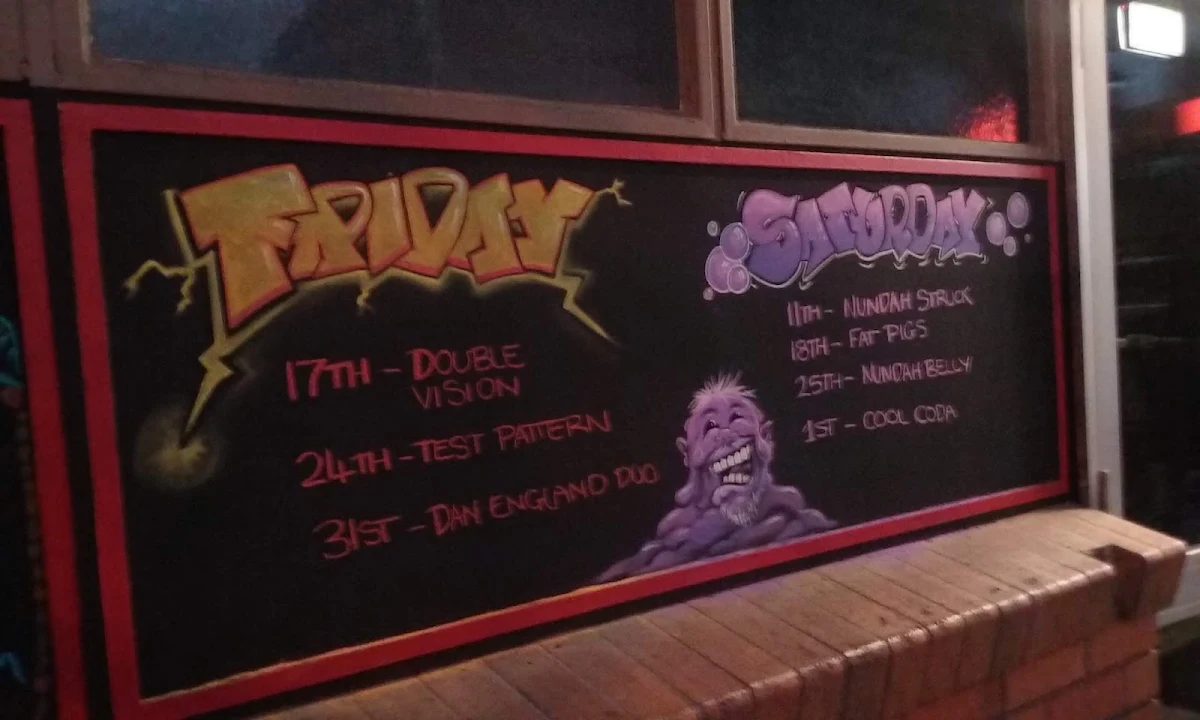 FRIDAY
17TH - DOUBLE
VISION
24TH - TEST PATTERN
31ST - DAN ENGLAND DUO
SATURDAY
11TH - NUNDAH STRUCK
18TH - FAT PIGS
25TH - NUNDAH BELLY
1ST - COOL CODA